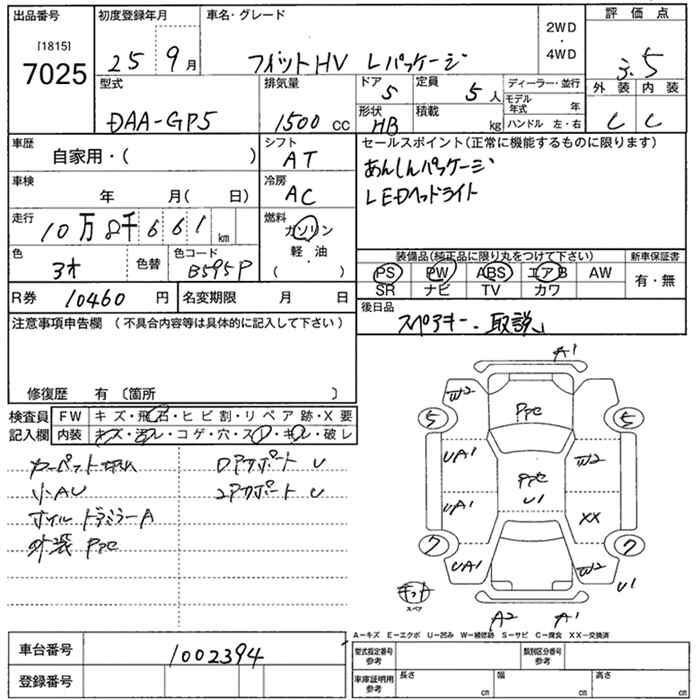 出品番号 初度登録年月 車名・グレード 2WD・4WD 評価点
[1815]
7025 25 9月 フィットHV Lパッケージ 3.5
型式 排気量 ドア 定員 ディーラー・並行 外装 内装
DAA-GP5 1500cc 5 5人 モデル年式 年 C C
形状 積載 ハンドル 左・右
HB kg
車歴 シフト セールスポイント(正常に機能するものに限ります)
自家用・( ) AT あんしんパッケージ
車検 冷房 LEDヘッドライト
年 月( 日) AC
走行 燃料
10万8千661km ガソリン
軽・油
( )
色 色替 色コード 装備品(純正品に限り丸をつけて下さい) 新車保証書
B595P PS PW ABS エアB AW 有・無
R券 10460円 名変期限 月 日 SR ナビ TV カワ
注意事項申告欄 (不具合内容等は具体的に記入して下さい) 後日品
スペアキー・取説
修復歴 有 〔箇所 〕
検査員 FW キズ・飛石・ヒビ割・リペア跡・X要
記入欄 内装 キズ・汚レ・コゲ・穴・スレ・キレ・破レ
カーペット切れ Dアポート U
小AU
ホイル ドアミラーA
外装 PPC
A1
W2
PPC
5 5
UA1 W2
PPC
U1
UA1 XX
7 7
UA1 W2
U1
キット
スペア
A2 A1
A-キズ E-エクボ U-凹み W-補修跡 S-サビ C-腐食 XX-交換済
車台番号 1002394 型式指定番号 参考 類別区分番号 参考
登録番号 車庫証明用 参考 長さ cm 幅 cm 高さ cm